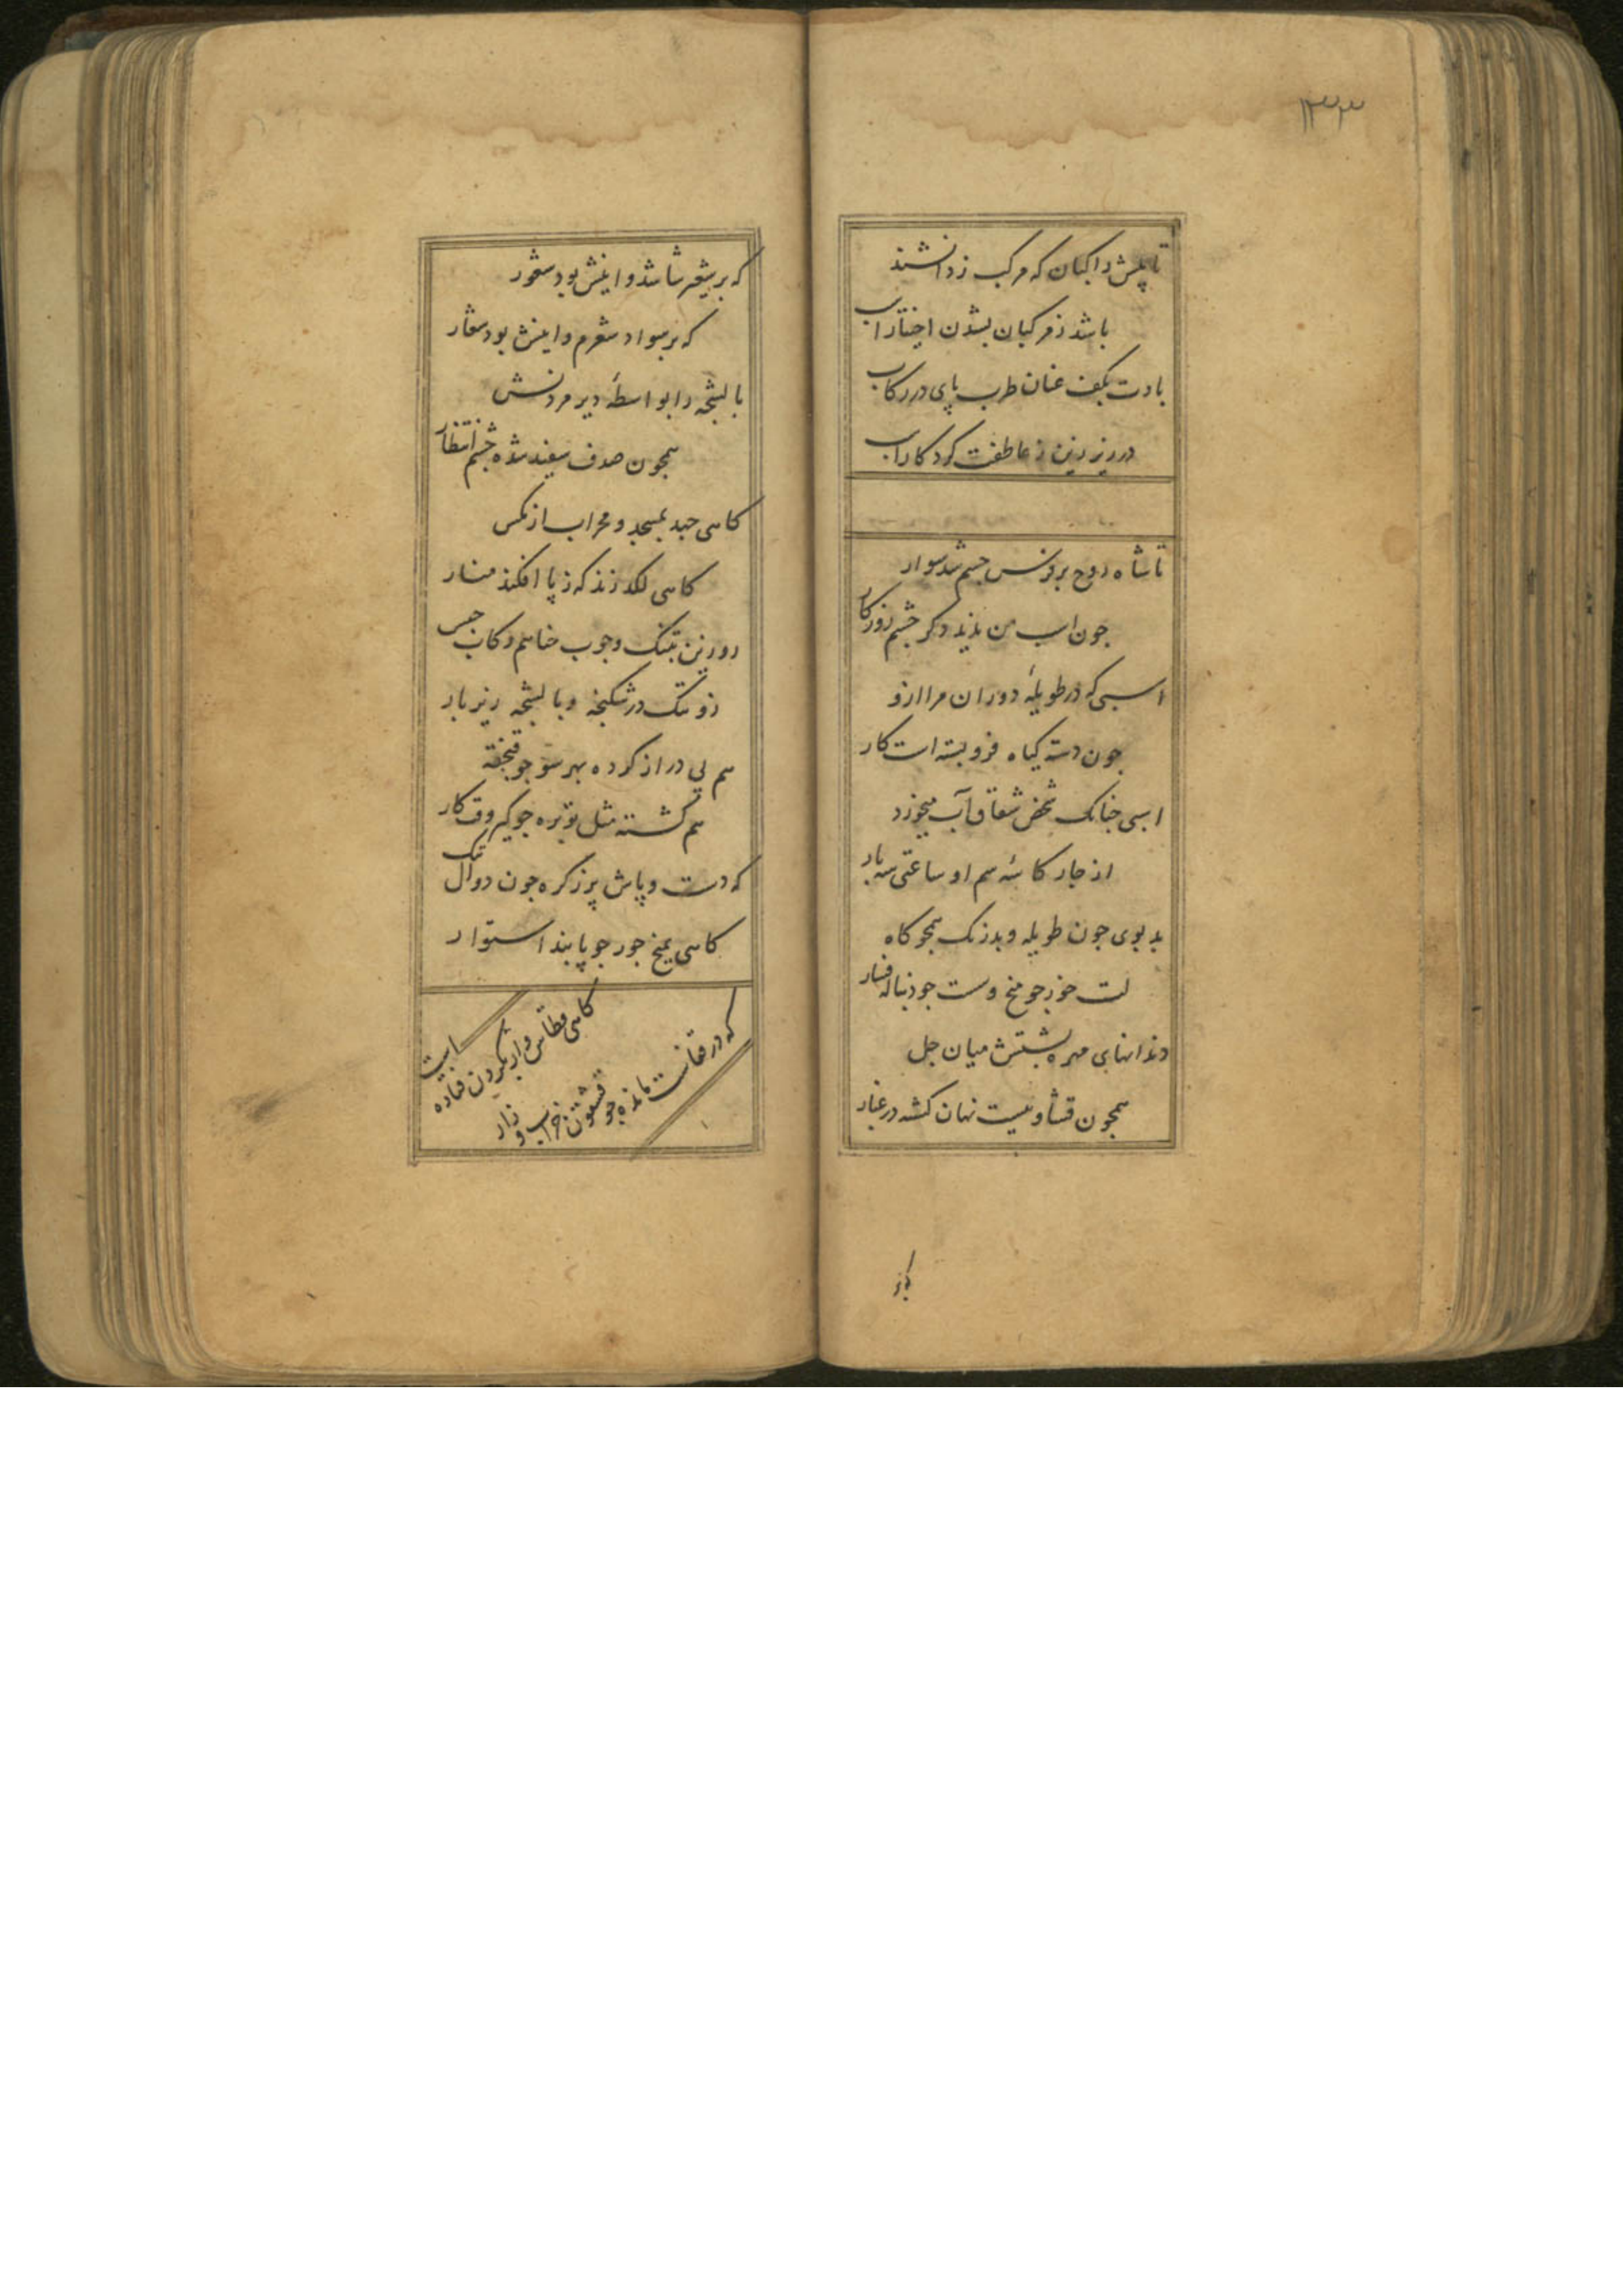 ۱۳۳
تا پیش راکبان که مرکب ز دانشند
باشد ز مرکبان بشدن اختیار اسب
بادت بکف عنان طرب پای در رکاب
در زیر زین ز عاطفت کردکار اسب
تا شاه روح بر فرس جسم شد سوار
جون اسب من ندید دکر جشم روزکار
اسبی که در طویلهٔ دوران مرا ازو
جون دسته کیاه فرو بسته است کار
اسبی جنانک شخص شقاق آب میخورد
از جار کاسهٔ سم او ساعتی سه بار
بد بوی جون طویله و بد رنک همجو کاه
لت خور جو میخ و سست جو دنباله فسار
دندانهای مهره بشتش میان جل
همجون قشاولیست نهان کشته در غبار
که بر
که بر شعر شاشد و اینش بود شعور
که بر سواد شعرم و اینش بود شعار
بالشجه را بواسطهٔ دیر مردنش
همجون صدف سفید شده جشم انتظار
کاهی جهد بمسجد و محراب از مکس
کاهی لکد زند که ز پا افکند منار
رو زین بتنک و جوب خناهم رکاب حبس
زو تنک در شکنجه و بالشجه زیر بار
هم پی دراز کرده بهر سو جو
هم کشته مثل توبره جو کیر وقت کار
که دست و پاش پر ز کره جون دوال تنک
کاهی بمیخ جور جو پابند استوار
کاهی قطاس وار بکردن فتاده است
که در قفاست مانده جو قشقون خراب و زار